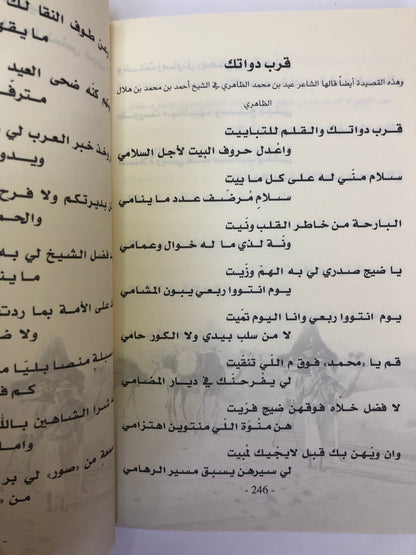 قرب دواتك
وهذه القصيدة أيضاً قالها الشاعر عبد بن محمد الظاهري في الشيخ أحمد بن محمد بن هلال
الظاهري
قرب دواتك والقلم للتباييت
واعْدل حروف البيت لأجل السلامي
سلام منّي له على كل ما بيت
سلامٍ مُرضّف عدد ما ينامي
البارحة من خاطر القلب ونّيت
ونّة لذي ما له خوال وعمامي
يا ضيج صدري لي به الهمّ وزّيت
يوم انتووا ربعي يبون المشامي
يوم انتووا ربعي وانا اليوم تمّيت
لا من سلب بيدي ولا الكور حامي
قم يا «محمد» فوق م اللّي تنقّيت
لي يفرحنّك في ديار المضامي
لا فضل خلّاه فوقهن ضيج فرّيت
هن منوّة اللي منتوين اهتزامي
وان ويّهن بك قبل لايجيك لمبيت
لي سيرهن يسبق مسير الرهامي
- 246 -
من طوف النقا لك
كنّه ضحى العيد
خذ خبر العرب لي
بديرتكم ولا فرح
فضل الشيخ لي به
على الأمة بما ردت
منصا بليّا
الشاهين بالله
من «صور» لي بر